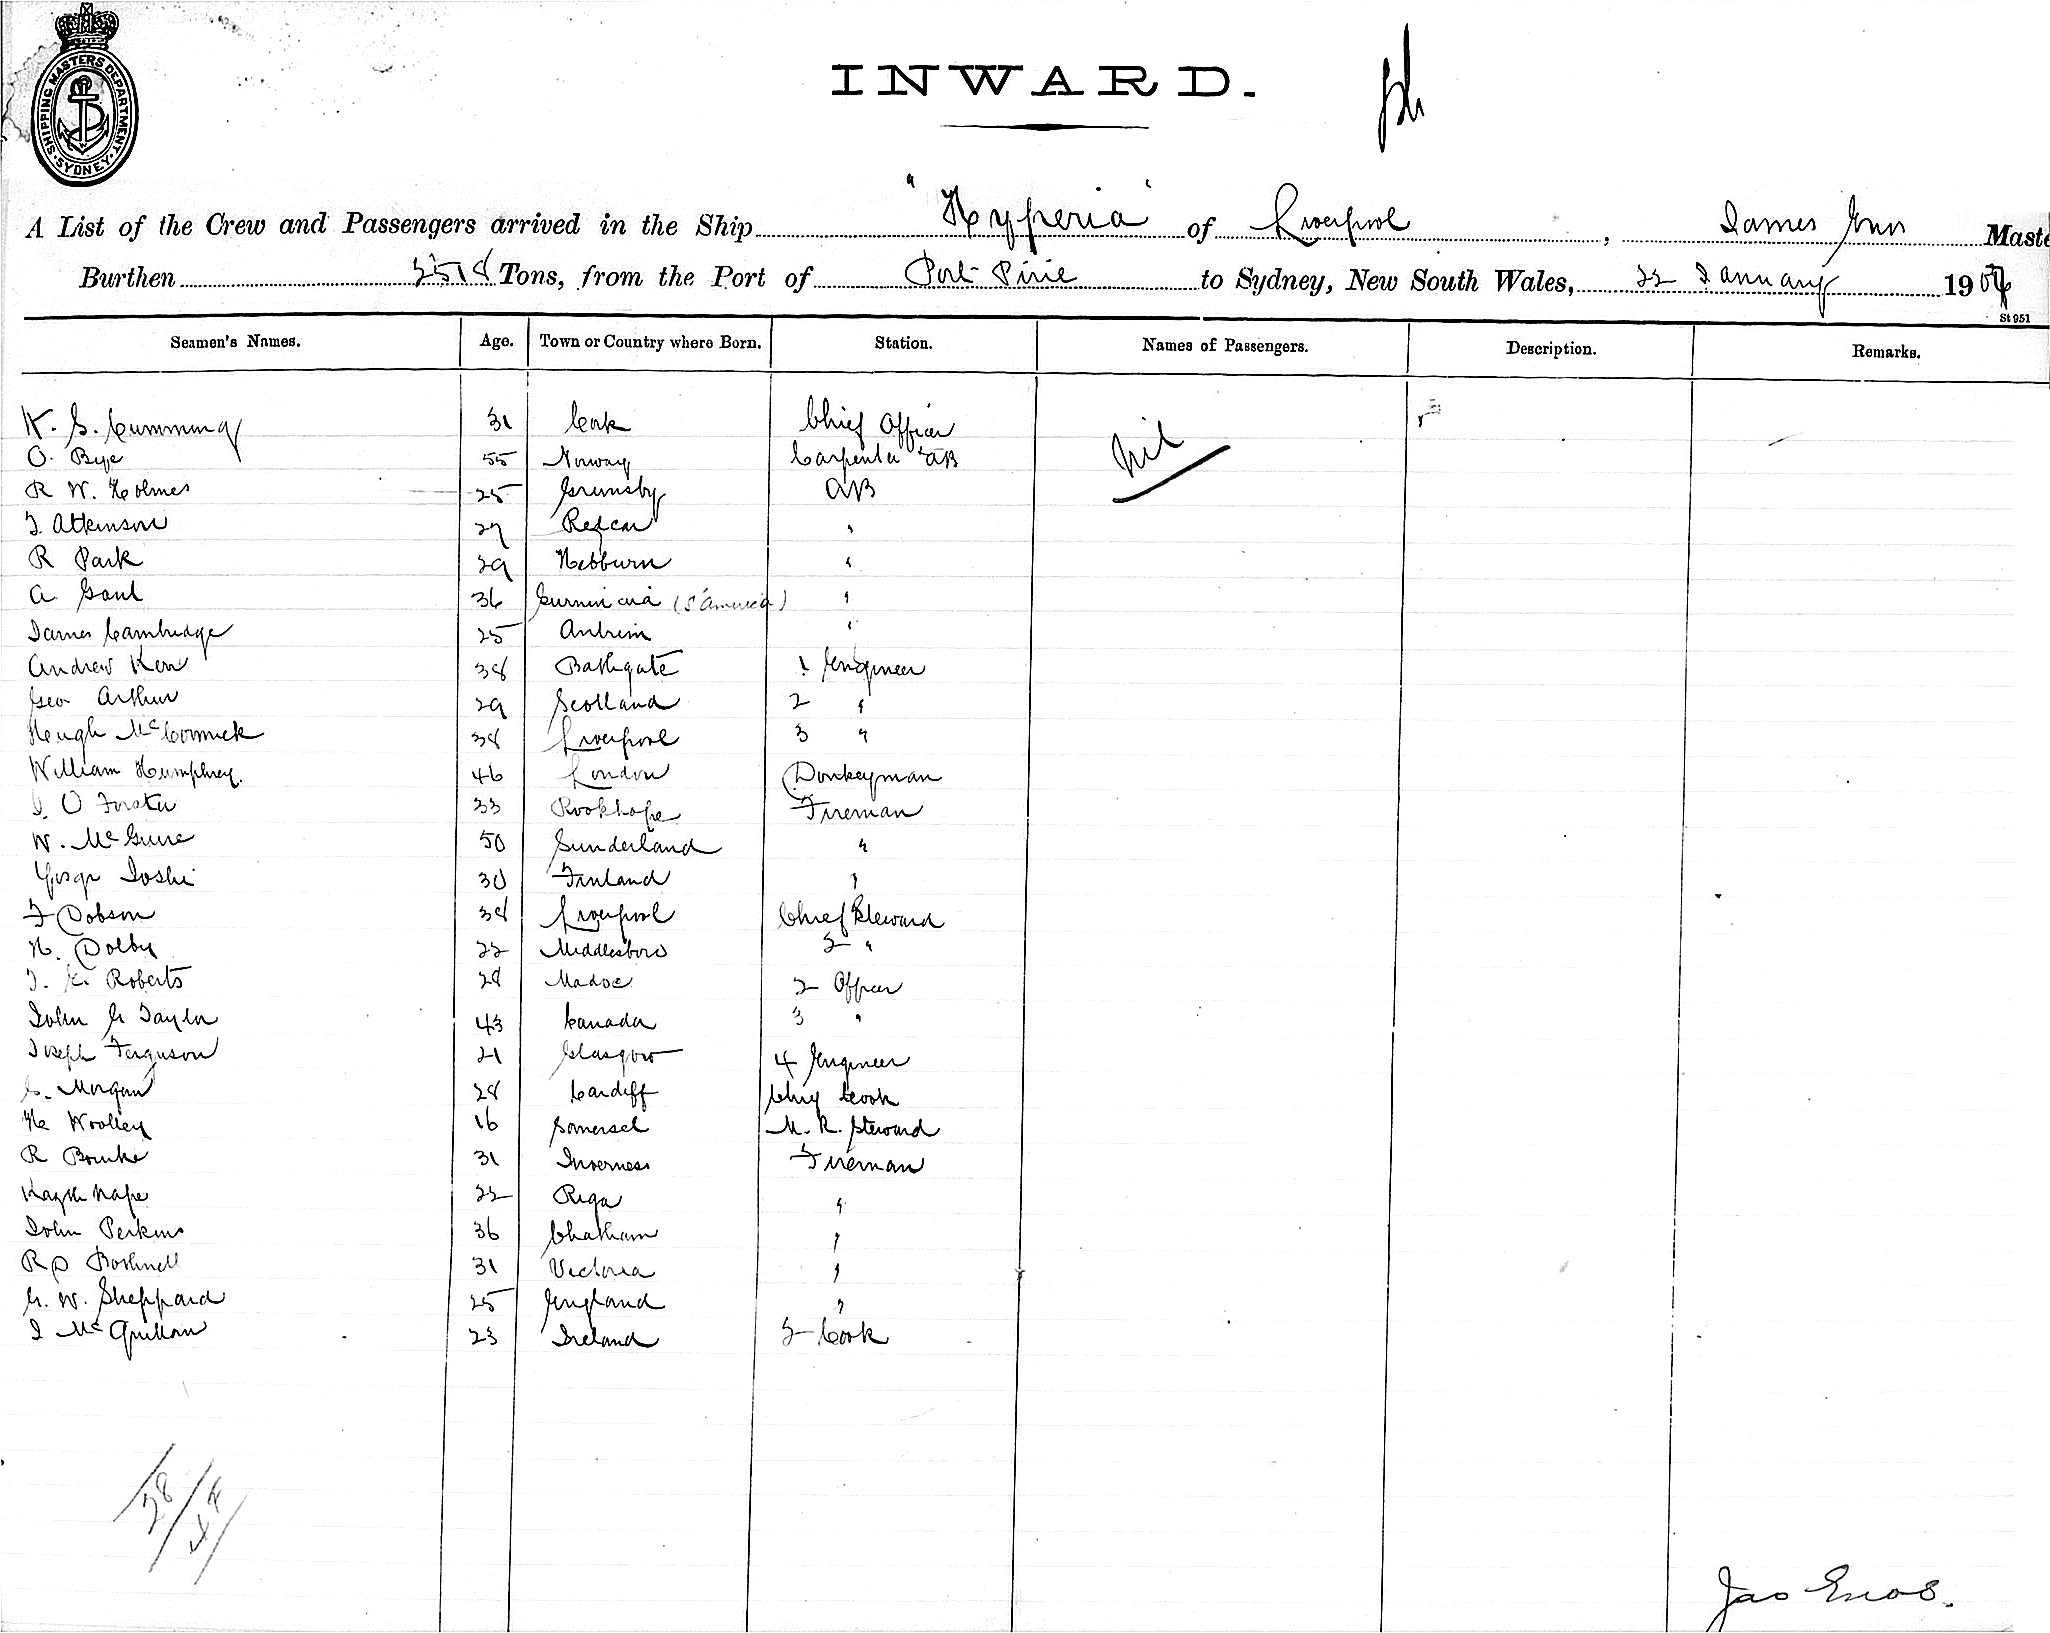 SHIPPING MASTERS DEPARTMENT. SYDNEY.
INWARD.
A List of the Crew and Passengers arrived in the Ship "Hyperia" of Liverpool, James Enos Maste
Burthen 2518 Tons, from the Port of Port Pirie to Sydney, New South Wales, 22 January 190
St 951
Seamen's Names. Age. Town or Country where Born. Station. Names of Passengers. Description. Remarks.
31 Cork Chief Officer
O. Bye 55 Norway Carpenter & AB Nil
R W. Holmes 25 Grimsby AB
T Atkinson 27 Redcar "
R Park 29 Hebburn "
A Gaul 36 (S America) "
James Cambridge 25 Antrim "
Andrew Kerr 38 Bathgate 1 Engineer
Geo Arthur 29 Scotland 2 "
Hugh McCormick 38 Liverpool 3 "
William Humphrey. 46 London Donkeyman
J. O Forster 33 Rookhope Fireman
W. McGuire 50 Sunderland "
30 Finland "
F Dobson 38 Liverpool Chief Steward
H. Dolby 22 Middlesboro 2 "
Roberts 28 Madoc 2 Officer
John G Taylor 43 Canada 3 "
Joseph Ferguson 21 Glasgow 4 Engineer
Morgan 28 Cardiff Chief Cook
H Woolley 16 Somerset M. R. Steward
R Bourke 31 Inverness Fireman
22 Riga "
John Perkins 36 Chatham "
R D Bothwell 31 Victoria "
G. W. Sheppard 25 England "
J McQuillan 23 Ireland 2 Cook
28
Jas Enos.